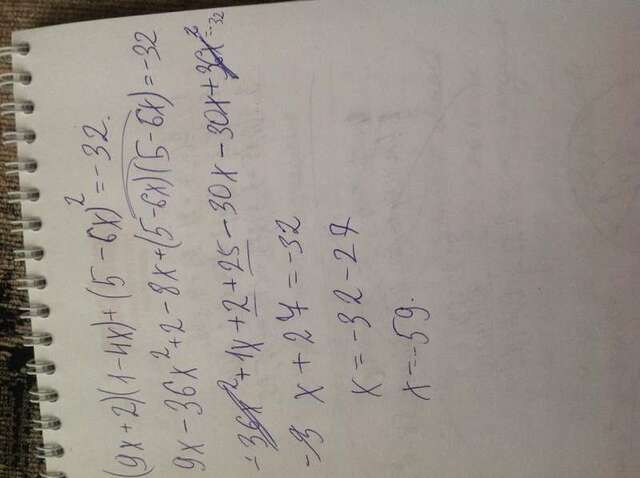 (9x+2)(1-4x)+(5-6x)²=-32.
9x-36x²+2-8x+(5-6x)(5-6x)=-32
-36x²+1x+2+25-30x-30x+36x²=-32
x+27=-32
x=-32-27
x=-59.